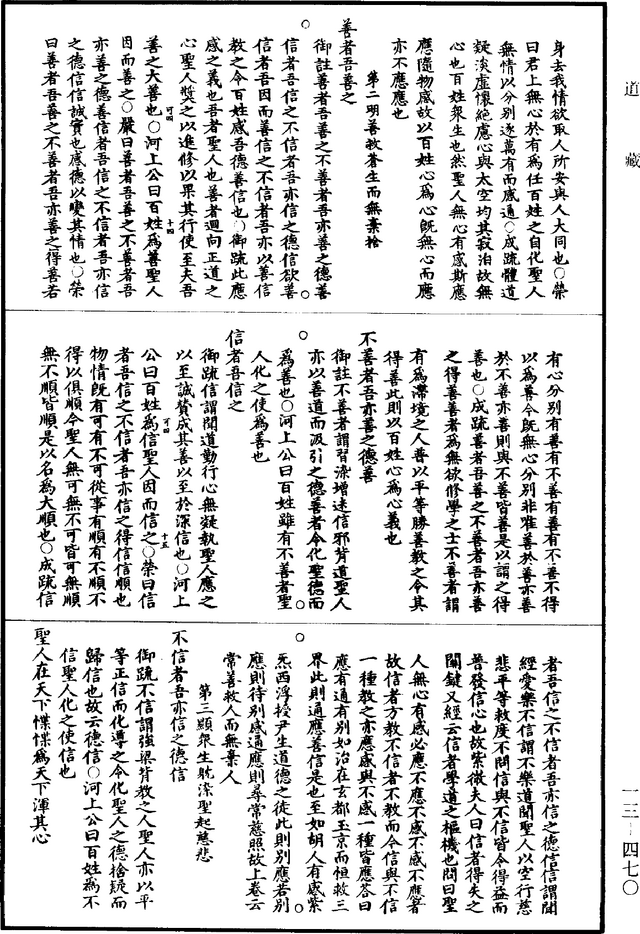 道藏
身去我情欲取人所安與人大同也○榮
曰君上無心於有為任百姓之自化聖人
無情以分別逐萬有而感通○成疏體道
凝淡虛懷絕慮心與太空均其寂泊故無
心也百姓眾生也然聖人無心有感斯應
應隨物感故以百姓心為心既無心而應
亦不應應也
第二明善救蒼生而無棄捨
善者吾善之
御註善者吾善之不善者吾亦善之德善
信者吾信之不信者吾亦信之德信欲善
信者吾因而善信之不信者吾亦以善信
教之令百姓感吾德善信也○御疏此應
感之義也吾者聖人也善者迴向正道之
心聖人獎之以進修以果其行使至夫吾
善之大善也○河上公曰百姓為善聖人
可四
十四
因而善之○嚴曰善者吾善之不善者吾
亦善之德善信者吾信之不信者吾亦信
之德信信誠實也感德以變其情也○榮
曰善者吾善之不善者吾亦善之得善若
有心分別有善有不善有善有不善不得
以為善今既無心分別非唯善於善亦善
於不善亦善則與不善皆善是以謂之得
善也○成疏善者吾善之不善者吾亦善
之得善善者為無欲修學之士不善者謂
有為滯境之人善以平等勝善教之令其
得善此則以百姓心為心義也
不善者吾亦善之德善
御註不善者謂習染增迷信邪背道聖人
亦以善道而汲引之德善者令化聖德而
為善也○河上公曰百姓雖有不善者聖
人化之使為善也
信者吾信之
御疏信謂聞道勤行心無疑執聖人應之
以至誠贊成其善以至於深信也○河上
公曰百姓為信聖人因而信之○榮曰信
可四
十五
者吾信之不信者吾亦信之得信信順也
物情既有可有不可從事有順有不順不
得以俱順今聖人無可無不可皆可無順
無不順皆順是以名為大順也○成疏信
者吾信之不信者吾亦信之德信信謂聞
經愛樂不信謂不樂道聞聖人以空行慈
悲平等救度不問信與不信皆令得益而
普發信心也故紫微夫人曰信者得失之
關鍵又經云信者學道之樞機也問曰聖
人無心有感必應不應不感不感不應者
故信者方教不信者不教而令信與不信
一種教之亦應感與不感一種皆應答曰
應有通有別如治在玄都玉京而恒救三
界此則通應善信是也至如胡人有感紫
炁西浮授尹生道德之徒此則別應若別
應則待別感通應則尋常慈照故上卷云
常善救人而無棄人
第三顯眾生躭染聖起慈悲
不信者吾亦信之德信
御疏不信謂強梁背教之人聖人亦以平
等正信而化導之令化聖人之德捨疑而
歸信也故云德信○河上公曰百姓為不
信聖人化之使信也
聖人在天下惵惵為天下渾其心
一三—四七〇